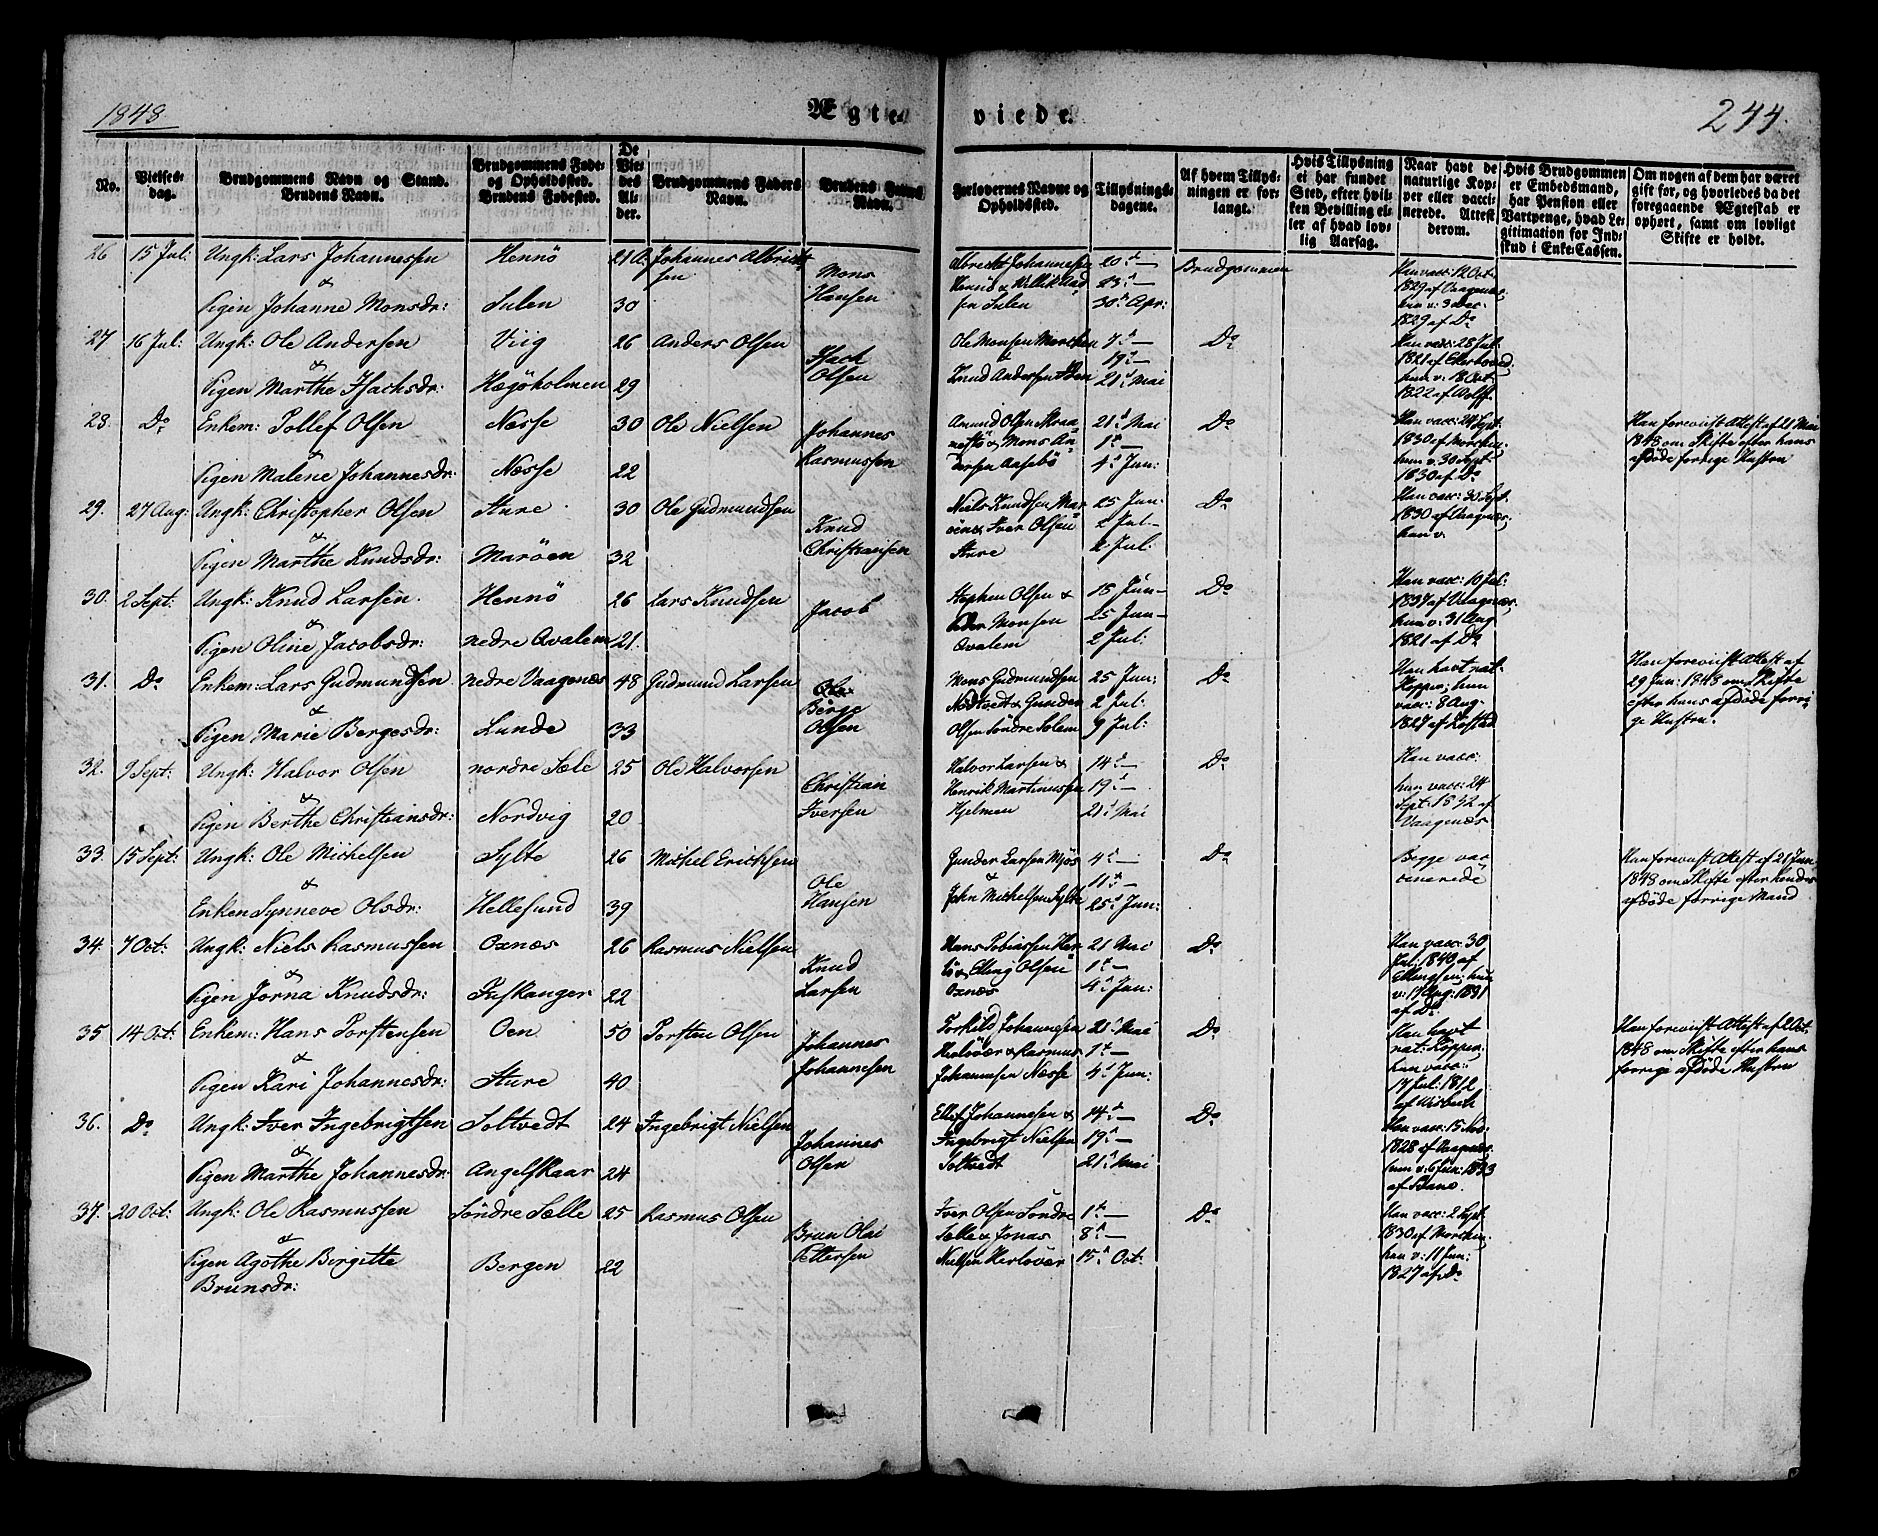 1848
Ægte viede.
244.
No.
Vielses-
dag.
Brudgommens Navn og Stand.
Brudens Navn.
Brudgommens Føde-
og Opholdssted.
Brudens Fødested.
De
Vie-
des
Al-
der.
Brudgommens Faders
Navn.
Brudens Faders
Navn.
Forlovernes Navne og
Opholdssted.
Tillysnings-
dagene.
Af hvem Tillys-
ningen er for-
langt.
Hvis Tillysning
ei har fundet
Sted, efter hvil-
ken Bevilling el-
ler af hvad lov-
lig Aarsag.
Naar havt de
naturlige Kop-
per eller vacci-
nerede. Attest
derom.
Hvis Brudgommen
er Embedsmand,
har Pension eller
Vartpenge, hvad Le-
gitimation for Ind-
skud i Enke-Cassen.
Om nogen af dem har været
gift før, og hvorledes da det
foregaaende Ægteskab er
ophørt, samt om lovligt
Skifte er holdt.
26 15 Jul: Ungk: Lars Johannessen Hennö 21 Johannes Albricht
sen Mons
Hansen
& Pigen Johanne Monsdr: Sulen 30
Albrecht Johannesen 20de —
Hennö & 23de —
sen Sulen 30te Apr:
Brudgommen
Han vacc: 12 Oct
1829 af Vaagenæs,
hun v: 3 Dec:
1829 af Do
27 16 Jul: Ungk: Ole Andersen Viig 26 Anders Olsen Isach
Olsen
& Pigen Marthe Isachsdr: Hægöholmen 29
Ole Monsen 7de —
& 19de —
Knud Andersen 21de Mai
Do
Han vacc: 28 Jul:
1821 af
hun v: 18 Oct:
1822 af Wolff.
28. Do Enkem: Tollef Olsen Nesse 30 Ole Nielsen Johannes
Rasmussen
Pigen Malene Johannesdr: Nesse 22
Amund Olsen Skraa- 21de Mai
nestö & Mons An- 1te —
dersen Aasebö 4de Jun:
Do
Han vacc: 24 Sept
1830 af
hun v. 30 Sept
1830 af Do
Han foreviist Attest af 21 Mai
1848 om Skifte efter hans
afdöde forrige Hustru
29. 27 Aug: Ungk: Christopher Olsen Sture 30 Ole Gudmundsen Knud
Christiansen
& Pigen Marthe Knudsdr: Maröen 32
Niels Knudsen Mar- 25 Jun:
öen & Iver Olsen 2 Jul —
Sture 2 Jul:
Do
Han vacc: 30 Sept.
1830 af Vaagnæs;
hun v.
30. 2 Sept: Ungk: Knud Larsen. Hennö 26 Lars Knudsen Jacob
& Pigen Oline Jacobsdr: nedre Qvalem 21.
Stephen Olsen & 18 Jun —
Peder Monsen 25 Jun —
Qvalem 2 Jul:
Do
Han vacc: 10 Jul:
1837 af Vaagnæs;
hun v: 31 Aug
1821 af Do
31. Do Enkem: Lars Gudmundsen nedre Vaagenæs 48 Gudmund Larsen Ole
Börge
Olsen
& Pigen Marie Bergesdr: Lunde 33
Mons Gudmundsen 25 Jun:
Nödtvedt & Gunder 2 Jul:
Olsen Söndre Solem 9 Jul:
Do
Han havt nat:
Kopper, hun
vacc: 8 Aug:
1827 af
Han foreviist Attest af
29 Jun: 1848 om Skifte
efter hans afdöde forri-
ge Hustru.
32. 9 Sept: Ungk: Halvor Olsen nordre Sæle 25 Ole Halvorsen Christian
Iversen
& Pigen Berthe Christiansdr: Nordvig 20
Halvor Larsen & 14de —
Henrik Martinussen 19de —
Hjelmen 21de Mai
Do
Han vacc:
hun vacc: 24
Sept: 1832 af
Vaagenæs
33. 15 Sept: Ungk: Ole Michelsen Sylte 26 Michel Erichsen Ole
Hansen
& Enken Synneve Olsdr: Hellesund 39
Gunder Larsen Myös 4de —
& 11te —
John Michelsen Sylte 25de Jun:
Do
Begge vac-
cinerede
Han foreviist Attest af 21 Jun
1848 om Skifte efter hendes
afdöde forrige Mand
34. 7 Oct: Ungk: Niels Rasmussen Oxnæs 26 Rasmus Nielsen Knud
Larsen
& Pigen Jorna Knudsdr: Feskanger 22
Hans Tobiassen Her- 21 Mai
lö & Elling Olsen 1te —
Oxnæs 4de Jun:
Do
Han vacc: 30
Jul: 1840 af
Ellingsen; hun
v: 19 Aug: 1831
af Do
35 14 Oct: Enkem: Hans Torstensen Oen 50 Torsten Olsen Johannes
Johannesen
& Pigen Kari Johannesdr: Sture 40
Torkild Johannesen 21de Mai
Herlövær & Rasmus 1te —
Johannesen Næsse 4de Jun:
Do
Han havt
nat: Kopper;
hun vacc:
17 Jul: 1812
af Wisbech
Han foreviist Attest af 2 Oct.
1848 om Skifte efter hans
forrige afdöde Hustru
36. Do Ungk: Iver Ingebrigtsen Toltvedt 24 Ingebrigt Nielsen Johannes
Olsen
& Pigen Marthe Johannesdr: Angelskaar 24
Ellef Johannesen & 14de —
Ingebrigt Nielsen 19de —
Toltvedt 21de Mai
Do
Han vacc: 15 Nov:
1828 af Vaagenæs,
hun v: 6 Jun: 1833
af
37. 20 Oct: Ungk: Ole Rasmussen Söndre Sælle 25 Rasmus Olsen Brun Olai
Pettersen
& Pigen Agothe Birgitte Bergen 22
Brunsdr:
Iver Olsen Söndre 1te —
Sælle & Jonas 8de —
Nielsen Herlövær 15de Oct:
Do
Han vacc: 2 Sept
1830 af
hun v: 11 Jun:
1827 af Do